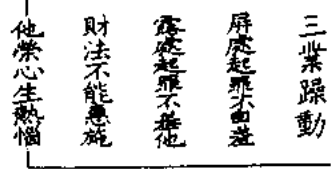 三業躁動
屏處起罪不自羞
露處起罪不羞他
財法不能惠施
他榮心生熱惱